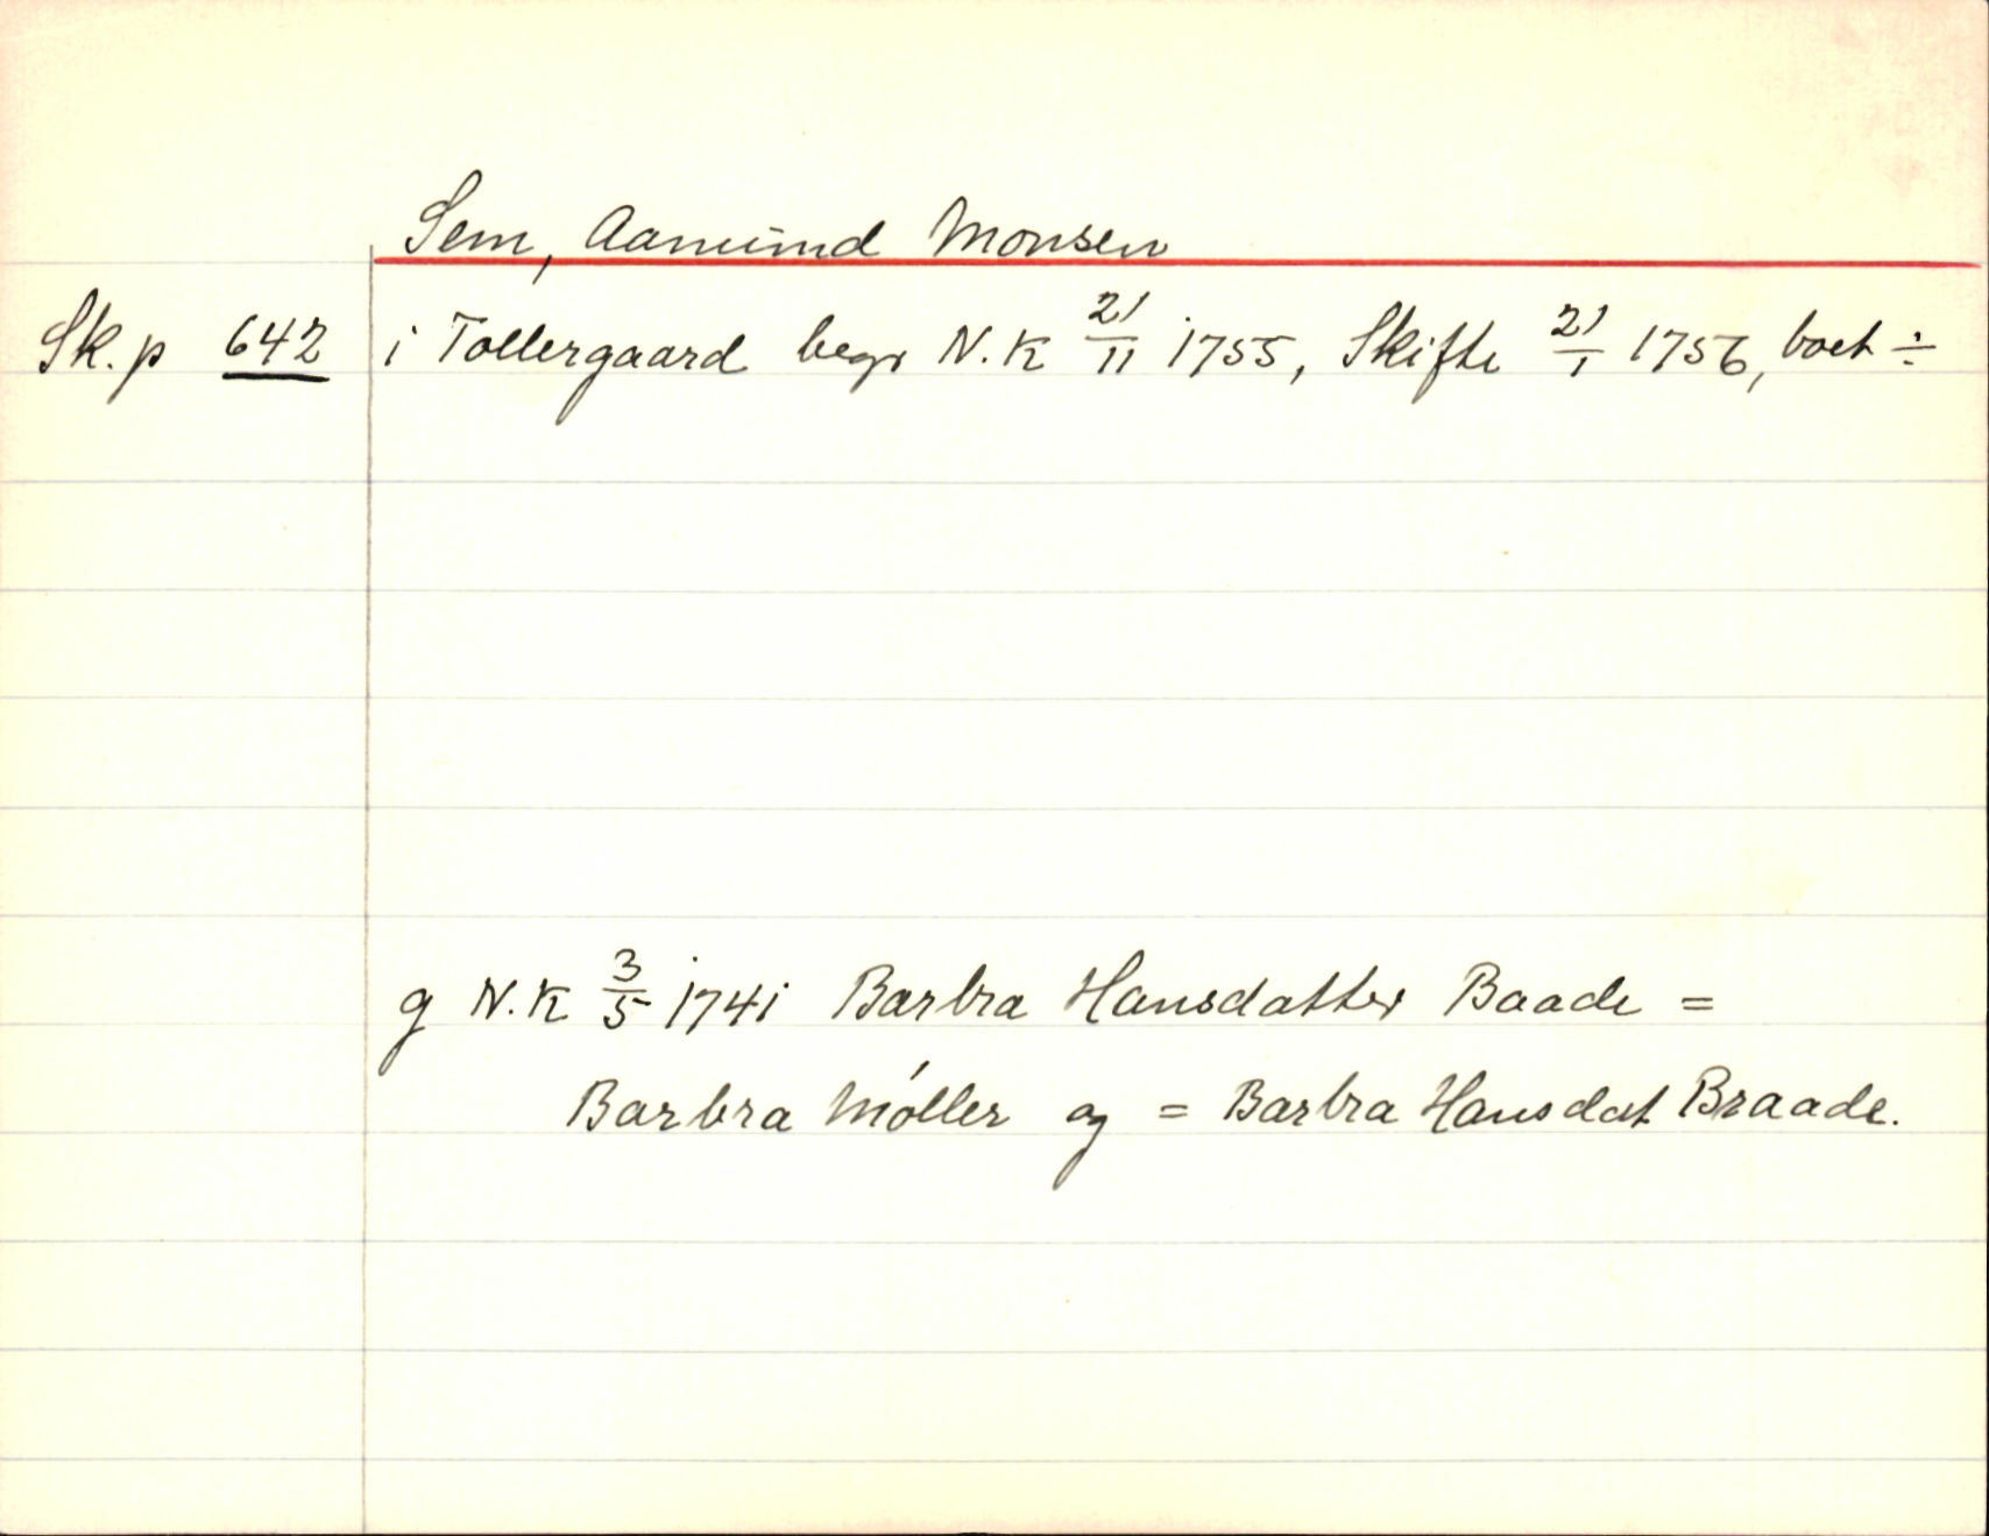 Sem, Aamund Monsen
Sk. p 642 i Tollergaard begr N.K 21/11 1755, Skifte 21/1 1756, boet ÷
g N.K 3/5 1741 Barbra Hansdatter Baade =
Barbra Móller og = Barbra Hansdat Braade.